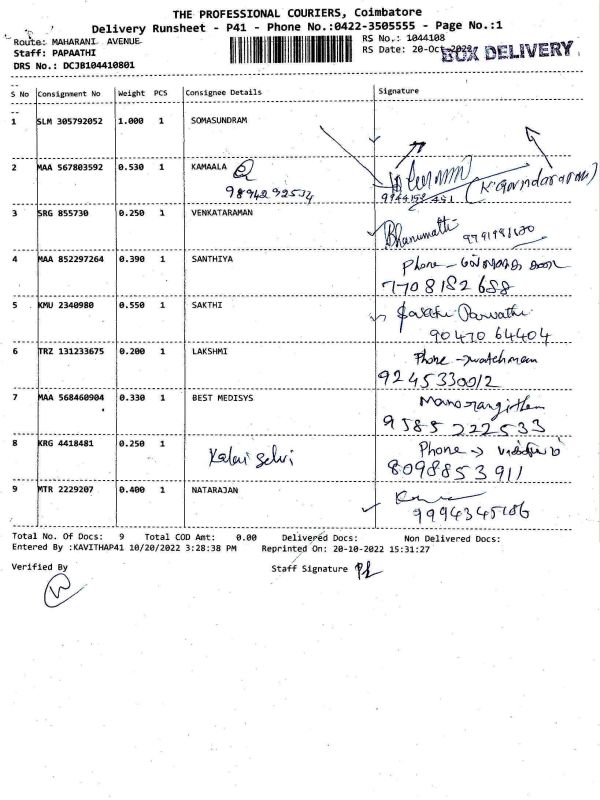 THE PROFESSIONAL COURIERS, Coimbatore
Delivery Runsheet - P41 - Phone No.:0422-3505555 - Page No.:1
Route: MAHARANI AVENUE
RS No.: 1044108
Staff: PAPAATHI
RS Date: 20-Oct-2022
BOX DELIVERY
DRS No.: DCJB104410801
S No Consignment No Weight PCS Consignee Details Signature
1 SLM 305792052 1.000 1 SOMASUNDRAM
2 MAA 567803592 0.530 1 KAMAALA
9894292534
(K Govindaraml)
3 SRG 855730 0.250 1 VENKATARAMAN
Bhanumathi
4 MAA 852297264 0.390 1 SANTHIYA Phone -
7708182688
5 KMU 2340980 0.550 1 SAKTHI
Parvathi
9047064404
6 TRZ 131233675 0.200 1 LAKSHMI Phone - watchman
9245330012
7 MAA 568460904 0.330 1 BEST MEDISYS
9585222533
8 KRG 4418481 0.250 1 Kalai Selvi Phone →
8098853911
9 MTR 2229207 0.400 1 NATARAJAN
9994345186
Total No. Of Docs: 9 Total COD Amt: 0.00 Delivered Docs: Non Delivered Docs:
Entered By :KAVITHAP41 10/20/2022 3:28:38 PM Reprinted On: 20-10-2022 15:31:27
Verified By Staff Signature